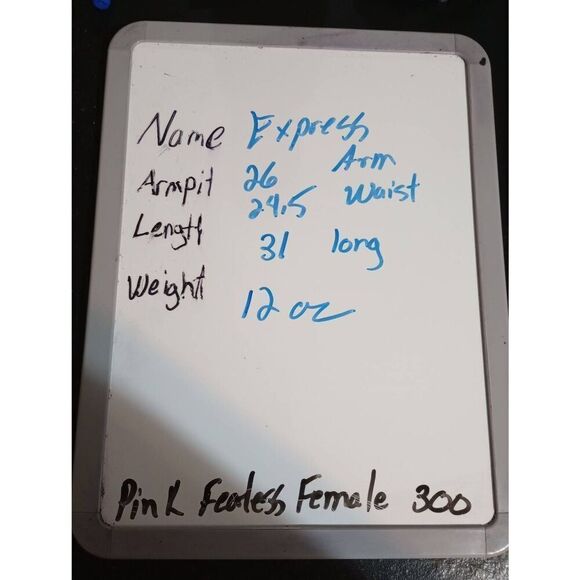 Name Express
Armpit 26 Arm
24.5 Waist
Length 31 long
Weight 12 oz
Pink Fearless Female 300